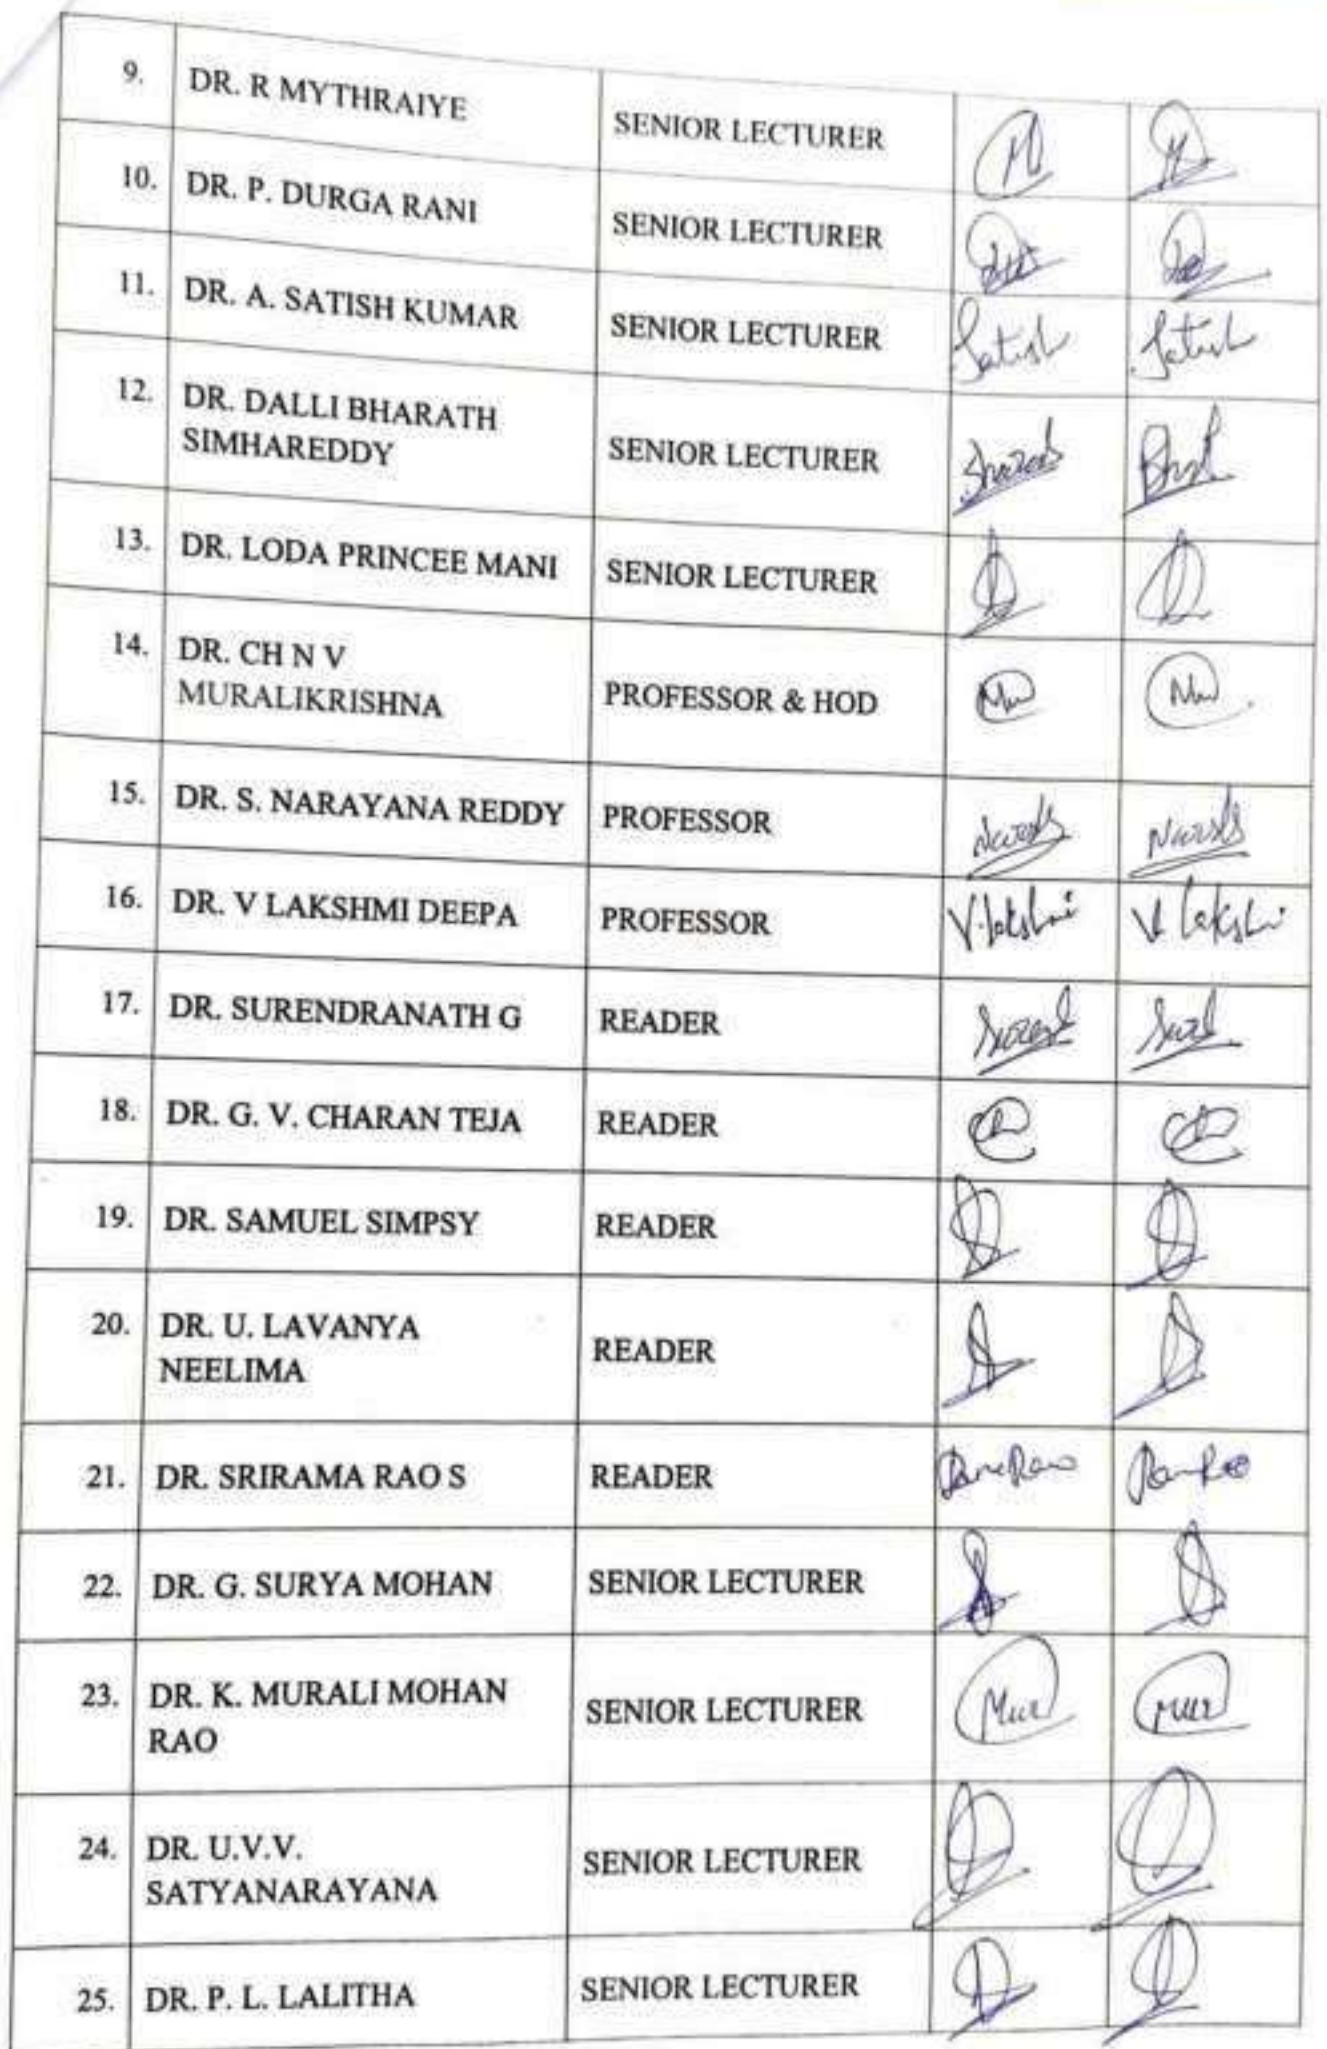 9. DR. R MYTHRAIYE SENIOR LECTURER
10. DR. P. DURGA RANI SENIOR LECTURER
11. DR. A. SATISH KUMAR SENIOR LECTURER Satish Satish
12. DR. DALLI BHARATH
SIMHAREDDY SENIOR LECTURER
13. DR. LODA PRINCEE MANI SENIOR LECTURER
14. DR. CH N V
MURALIKRISHNA PROFESSOR & HOD
15. DR. S. NARAYANA REDDY PROFESSOR
16. DR. V LAKSHMI DEEPA PROFESSOR V. lakshmi V lakshmi
17. DR. SURENDRANATH G READER
18. DR. G. V. CHARAN TEJA READER
19. DR. SAMUEL SIMPSY READER
20. DR. U. LAVANYA
NEELIMA READER
21. DR. SRIRAMA RAO S READER
22. DR. G. SURYA MOHAN SENIOR LECTURER
23. DR. K. MURALI MOHAN
RAO SENIOR LECTURER
24. DR. U.V.V.
SATYANARAYANA SENIOR LECTURER
25. DR. P. L. LALITHA SENIOR LECTURER